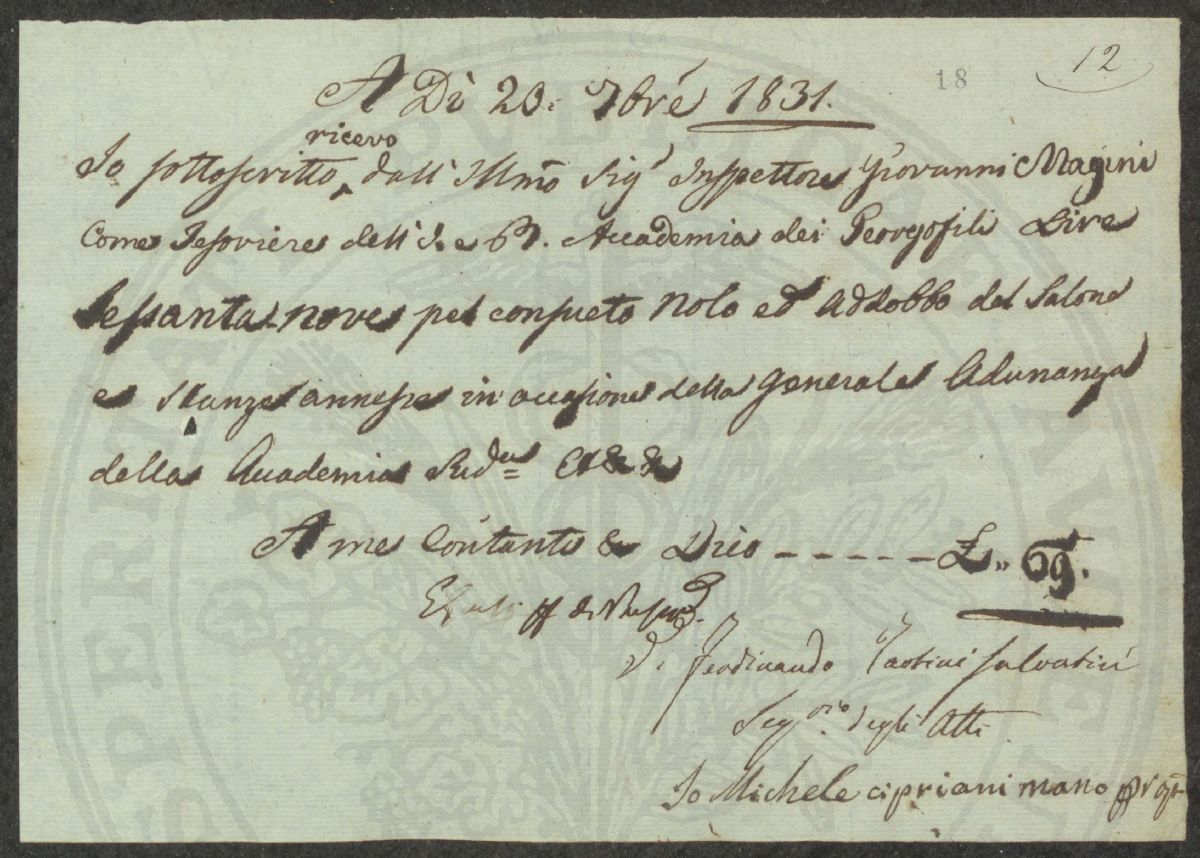 12
18
A Dì 20. 7bré 1831.
ricevo
Io sottoscritto dall' Illmo Sigr Inspettore Giovanni Magini
Come Tesoriere dell' I. e R. Accademia dei Georgofili Lire
Sessanta-nove pel consueto Nolo ed Addobbo del Salone
e Stanze annesse in occasione della Generale Adunanza
della Accademia Sudа &&&
A me Contanti & Dico ----- £.,, 69.
D. Ferdinando Tartini Salvatici
Segrio degli Atti
Io Michele Cipriani mano